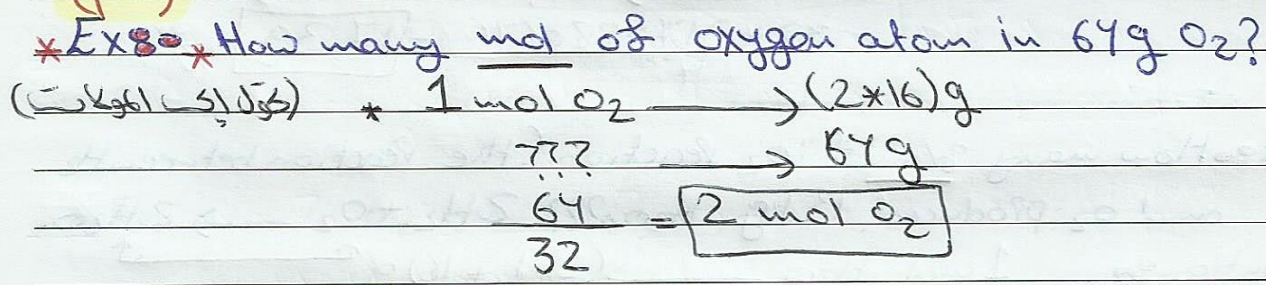 *Ex8:* How many mol of oxygen atom in 64g O₂?
* 1 mol O₂ → (2*16)g
??? → 64g
64/32 = 2 mol O₂